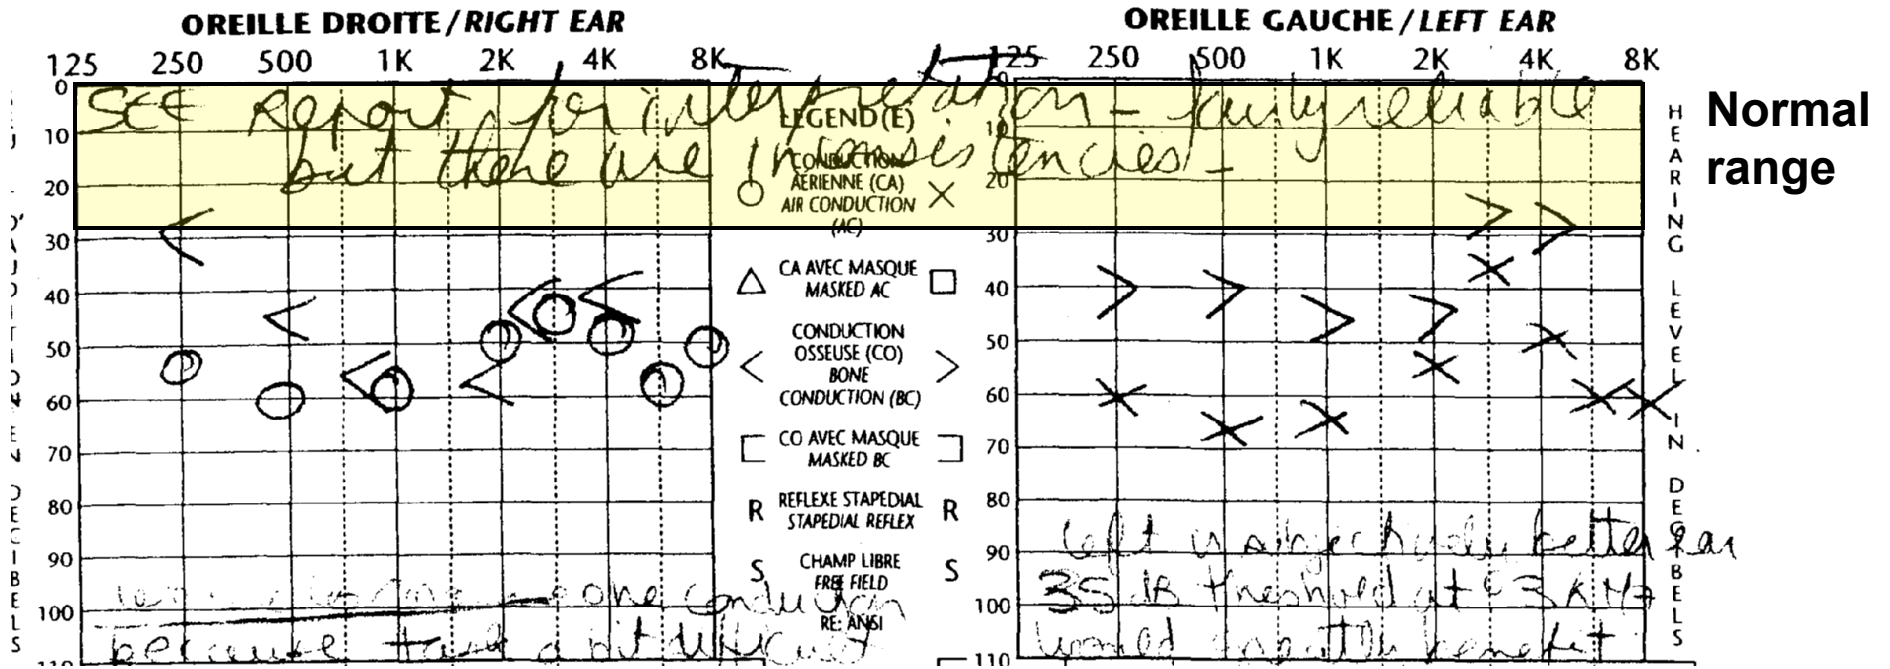 OREILLE DROITE / RIGHT EAR
125 250 500 1K 2K 4K 8K
0
10
20
30
40
50
60
70
80
90
100
110
SEE Report for interpretation - fairly reliable
but there are inconsistencies -
LEGEND(E)
CONDUCTION
AERIENNE (CA)
AIR CONDUCTION
(AC)
CA AVEC MASQUE
MASKED AC
CONDUCTION
OSSEUSE (CO)
BONE
CONDUCTION (BC)
CO AVEC MASQUE
MASKED BC
R REFLEXE STAPEDIAL R
STAPEDIAL REFLEX
S CHAMP LIBRE S
FREE FIELD
RE: ANSI
bone conduction
because task a bit difficult
OREILLE GAUCHE / LEFT EAR
125 250 500 1K 2K 4K 8K
0
10
20
30
40
50
60
70
80
90
100
110
left is subjectively better ear
35 dB threshold at 3 KHz
would greatly benefit
HEARING LEVEL IN DECIBELS
Normal
range